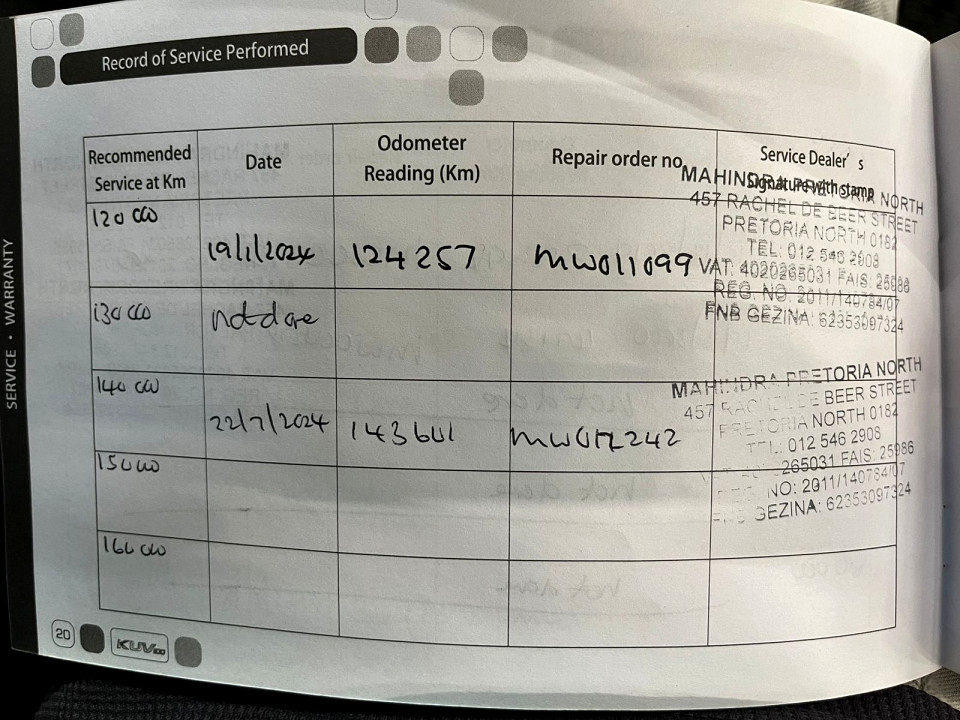 Record of Service Performed
Recommended Service at Km
Date
Odometer Reading (Km)
Repair order no.
Service Dealer's Signature with stamp
120 000
19/1/2024
124257
MW011099
MAHINDRA PRETORIA NORTH
457 RACHEL DE BEER STREET
PRETORIA NORTH 0182
TEL: 012 546 2908
VAT: 4020265031 FAIS: 25986
REG. NO. 2011/140784/07
FNB GEZINA: 62353097324
130 000
not done
140 000
22/7/2024
MAHINDRA PRETORIA NORTH
457 RACHEL DE BEER STREET
PRETORIA NORTH 0182
TEL: 012 546 2908
265031 FAIS: 25986
NO: 2011/140784/07
GEZINA: 62353097324
150 000
160 000
20
KUV100
SERVICE • WARRANTY